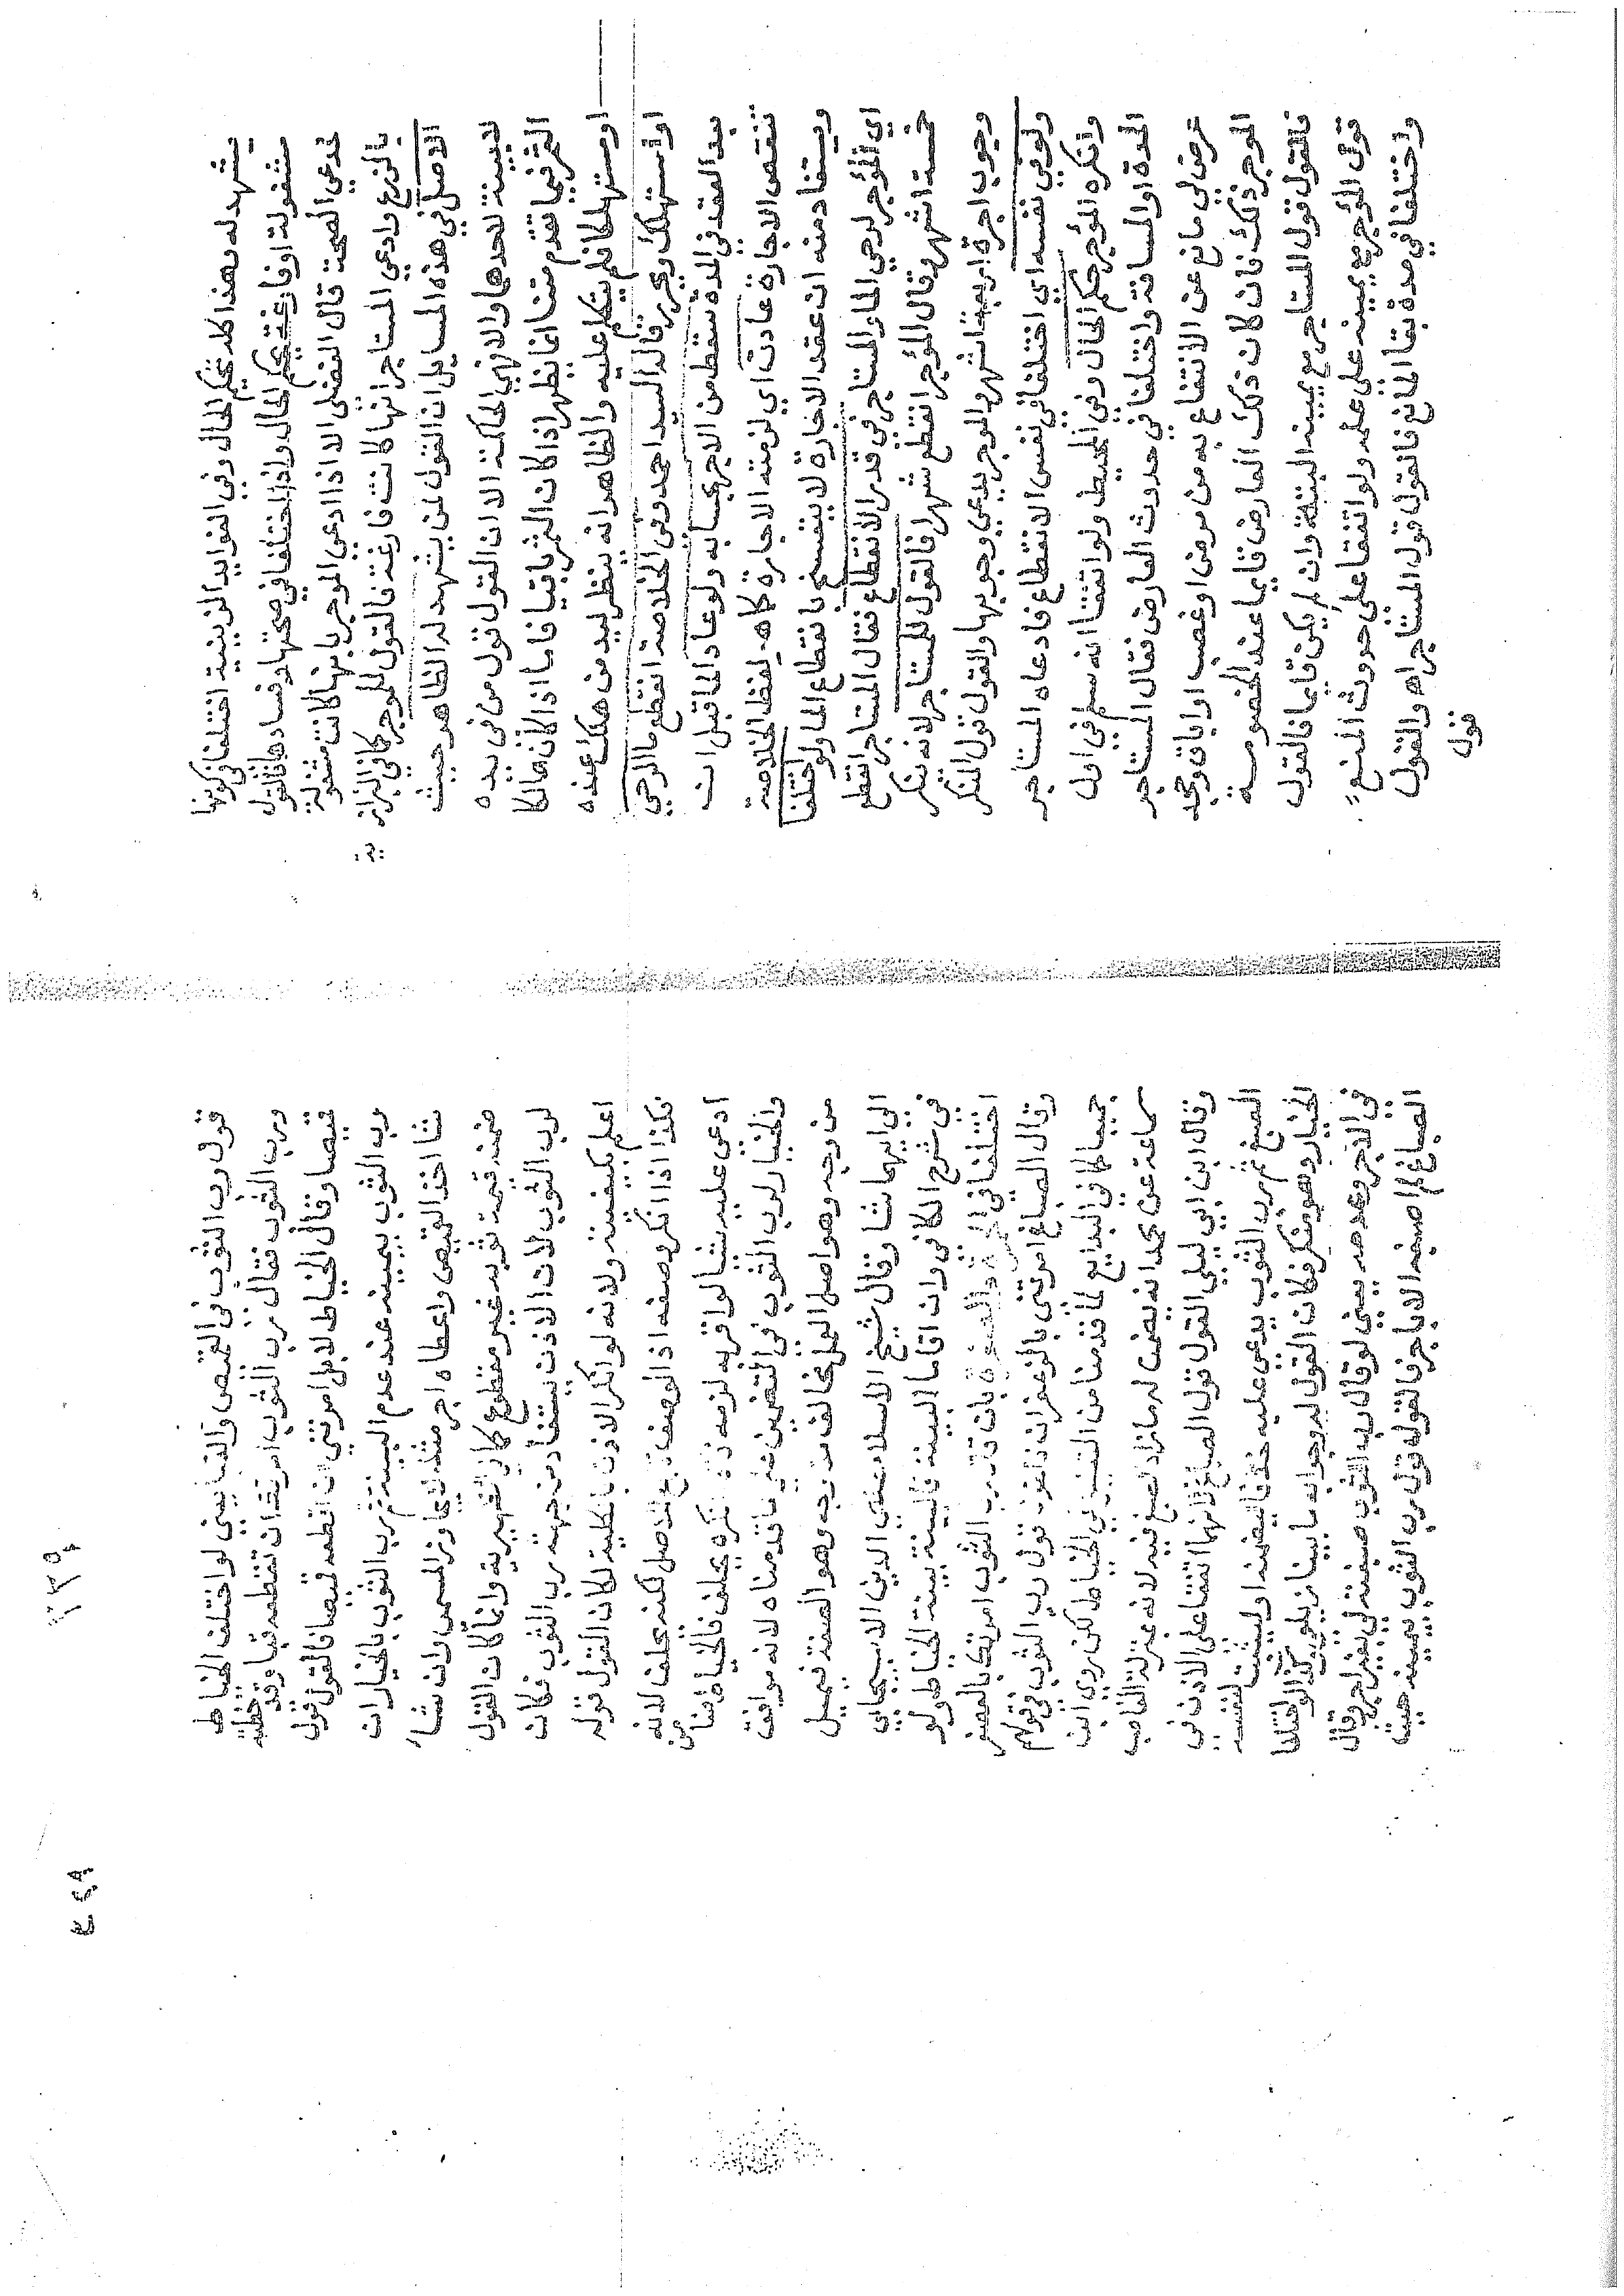 يشهد له بهذا كله تحكيم الحال وفي الفوايد الزينية اختلفا في كونها
مشغولة او فارغة يحكم الحال واذا اختلفا في صحتها وفسادها فالقول
لمدعي الصحة قال الفضلى الا اذا ادعي الموجر بانها كانت مشغولة
بالزرع وادعي المستاجر انها كانت فارغة فالقول للموجر كما في البزازية
الاصل في هذه المسايل ان القول لمن يشهد له الظاهر حيث
لا بينة لاحدهما والا فهي الحاكمة الا ان القول قول من في يده
الثمر فيما تقدم متنا انما يظهر اذا كان الثمر باقيا فاما اذا كان هالكا
او مستهلكا فلم يتكلم عليه والظاهر انه ينظر ليد من هلك عنده
او استهلك ويحرر قاله السيد احمد وفي الخلاصة انقطع ما الرحي
بعد العقد في المدة سقط من الاجر بحسابه ولو عاد الماء قبل ان
تنقص الاجارة عادت اي لزمته الاجارة كاه لفظ الخلاصة
ويستفاد منه ان عقد الاجارة لا ينفسخ بانقطاع الما ولو اختلفا
اي المؤجر لرحي الماء والمستاجر في قدر الانقطاع فقال المستاجر انقطع
خمسة اشهر وقال المؤجر انقطع شهرا فالقول للمستاجر لانه ينكر
وجوب اجرة اربعة اشهر والموجر يدعي وجوبها والقول قول المنكر
ولو في نفسه اي اختلفا في نفس الانقطاع فادعاه المستاجر
وانكره المؤجر حكم الحال وفي المحيط ولو اتفقا انه سلم في اول
المدة او المسافة واختلفا في حدوث العارض فقال المستاجر
عرض لي مانع عن الانتفاع به من مرض او غصب او اباق وجحد
الموجر ذلك فان كان ذلك العارض قايما عند الخصومة
فالقول قول المستاجر مع يمينه البتة وان لم يكن قايما فالقول
قول المؤجر مع يمينه على علمه ولو اتفقا على حدوث المنع
واختلفا في مدة بقا المانع فالقول قول المستاجر اه والقول
قول
قول رب الثوب في القميص والقبا يعني لو اختلف الخياط
ورب الثوب فقال رب الثوب امرتك ان تقطعه قبا وقد خطته
قميصا وقال الخياط لا بل امرتني ان اقطعه قميصا فالقول قول
رب الثوب بيمينه عند عدم البينة ثم رب الثوب بالخيار ان
شا اخذ القميص واعطاه اجر مثله لا يجاوز المسمى وان شا
ضمنه قيمة ثوبه غير مقطوع كما في الظهيرية وانما كان القول
لرب الثوب لان الاذن يستفاد من جهة رب الثوب فكان
اعلم بكيفيته ولانه لو انكر الاذن بالكلية لكان القول قوله
فكذا اذا انكر وصفه اذ الوصف تابع للاصل لكنه يحلف لانه
ادعى عليه شيا لو اقر به لزمه فاذا انكره يحلف فالخياط ضامن
والخيار لرب الثوب في التضمين على ما قدمناه لانه موافق
من وجه وهو اصل العمل مخالف من وجه وهو الصفة فيميل
الى ايهما شا وقال شيخ الاسلام علي الدين الاسبيجابي
في شرح الكافي وان اقاما البينة فالبينة بينة الخياط ولو
اختلفا في الحمرة والصفرة بان قال رب الثوب امرتك بالعصفر
وقال الصباغ امرتني بالزعفران فالقول قول رب الثوب في قولهم
جميعا كما في البدايع لما قدمنا من التبيين في الخياط لكن روي ابن
سماعة عن محمد انه يضمن له ما زاد الصبغ فيه لانه بمنزلة الغاصب
وقال ابن ابي ليلي القول قول الصباغ لانهما اتفقا على الاذن في
الصبغ ثم رب الثوب يدعى عليه خلافا ليضمنه او ليثبت لنفسه
الخيار وهو منكر فكان القول له وجوابه ما بينا زيلعي كذا لو اختلفا
في الاجر وعدمه يعني لو قال رب الثوب صبغته لي بغير اجر وقال
الصباغ لم اصبغه الا باجر فالقول قول رب الثوب بيمينه حيث